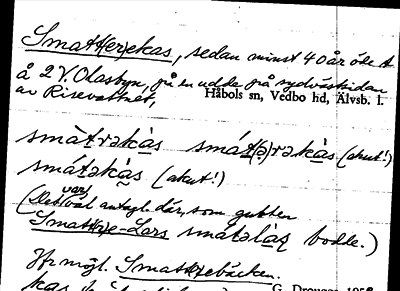 Smatt(er)ekas, sedan minst 40 år öde t
å 2 V. Olasbyn, på en udde på sydvästsidan
av Risevattnet, Håbols sn, Vedbo hd, Älvsb. l.
smàtrəkàs smát(ə)rəkàs (akut!)
smátəkàs (akut!)
(Det var väl antagl. där, som gubben
Smatt(e)-Lars smátəlàs bodde.)
Jfr mögl. Smattebäcken.
G. Drougge 195